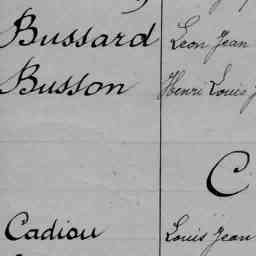 Bussard Leon Jean
Busson Henri Louis J
C
Cadiou Louis Jean